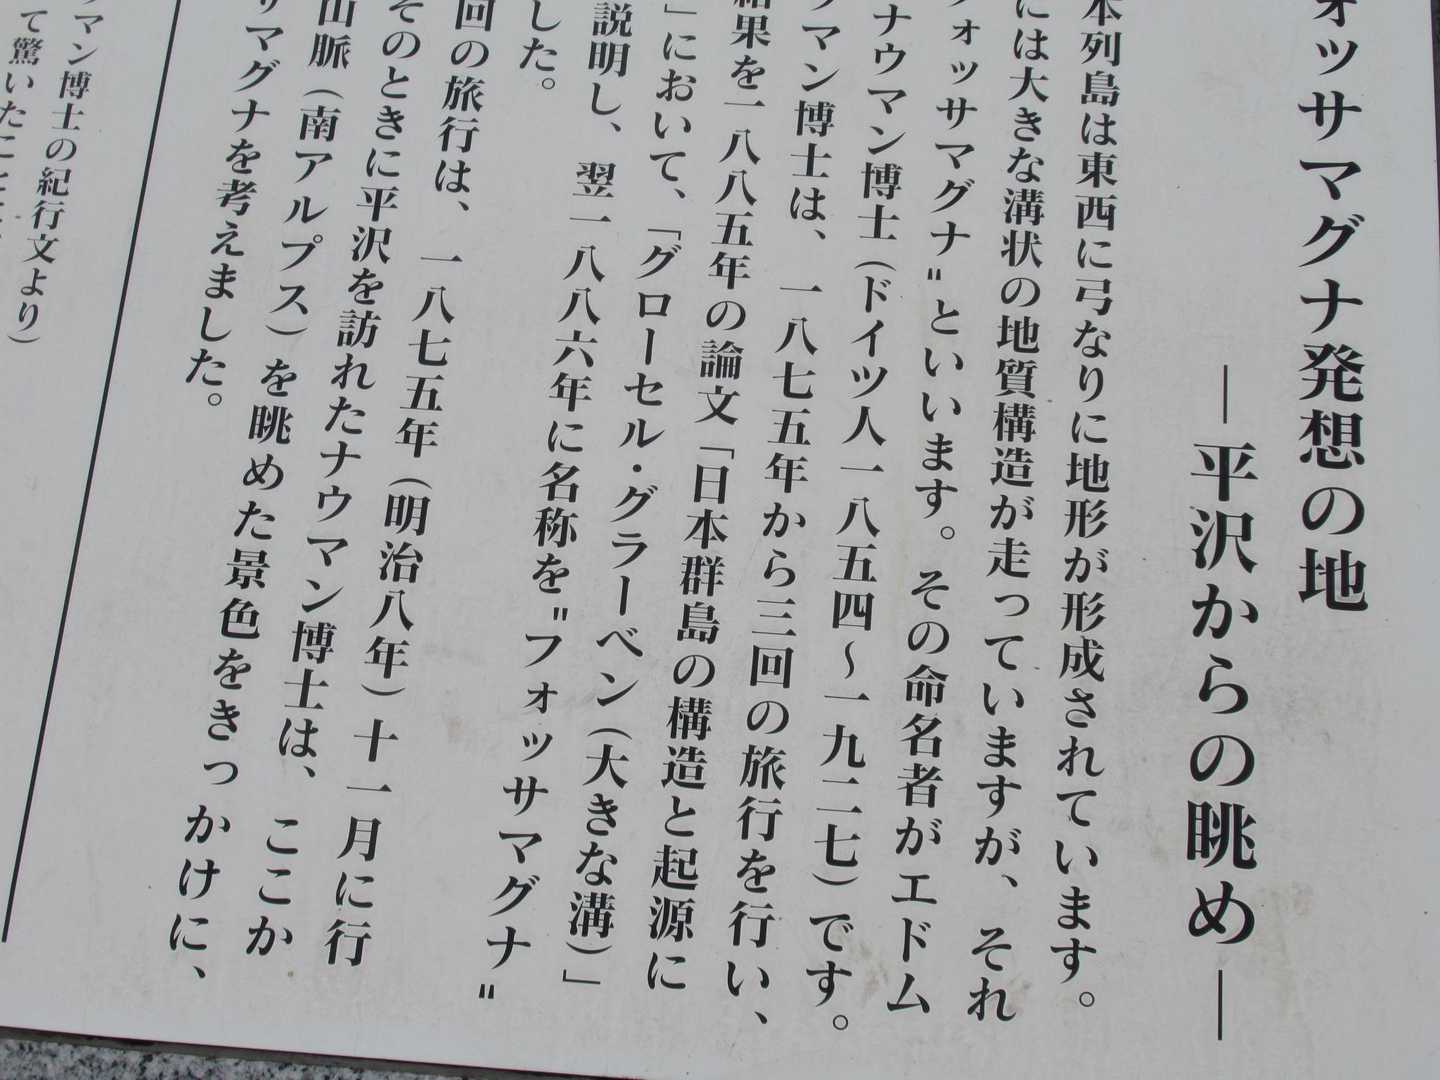 ォッサマグナ発想の地
―平沢からの眺め―
本列島は東西に弓なりに地形が形成されています。
には大きな溝状の地質構造が走っていますが、それ
フォッサマグナ"といいます。その命名者がエドム
ナウマン博士（ドイツ人一八五四〜一九二七）です。
マン博士は、一八七五年から三回の旅行を行い、
結果を一八八五年の論文「日本群島の構造と起源に
」において、「グローセル・グラーベン（大きな溝）」
説明し、翌一八八六年に名称を"フォッサマグナ"
した。
回の旅行は、一八七五年（明治八年）十一月に行
そのときに平沢を訪れたナウマン博士は、ここか
山脈（南アルプス）を眺めた景色をきっかけに、
サマグナを考えました。
マン博士の紀行文より）
て驚いたこと